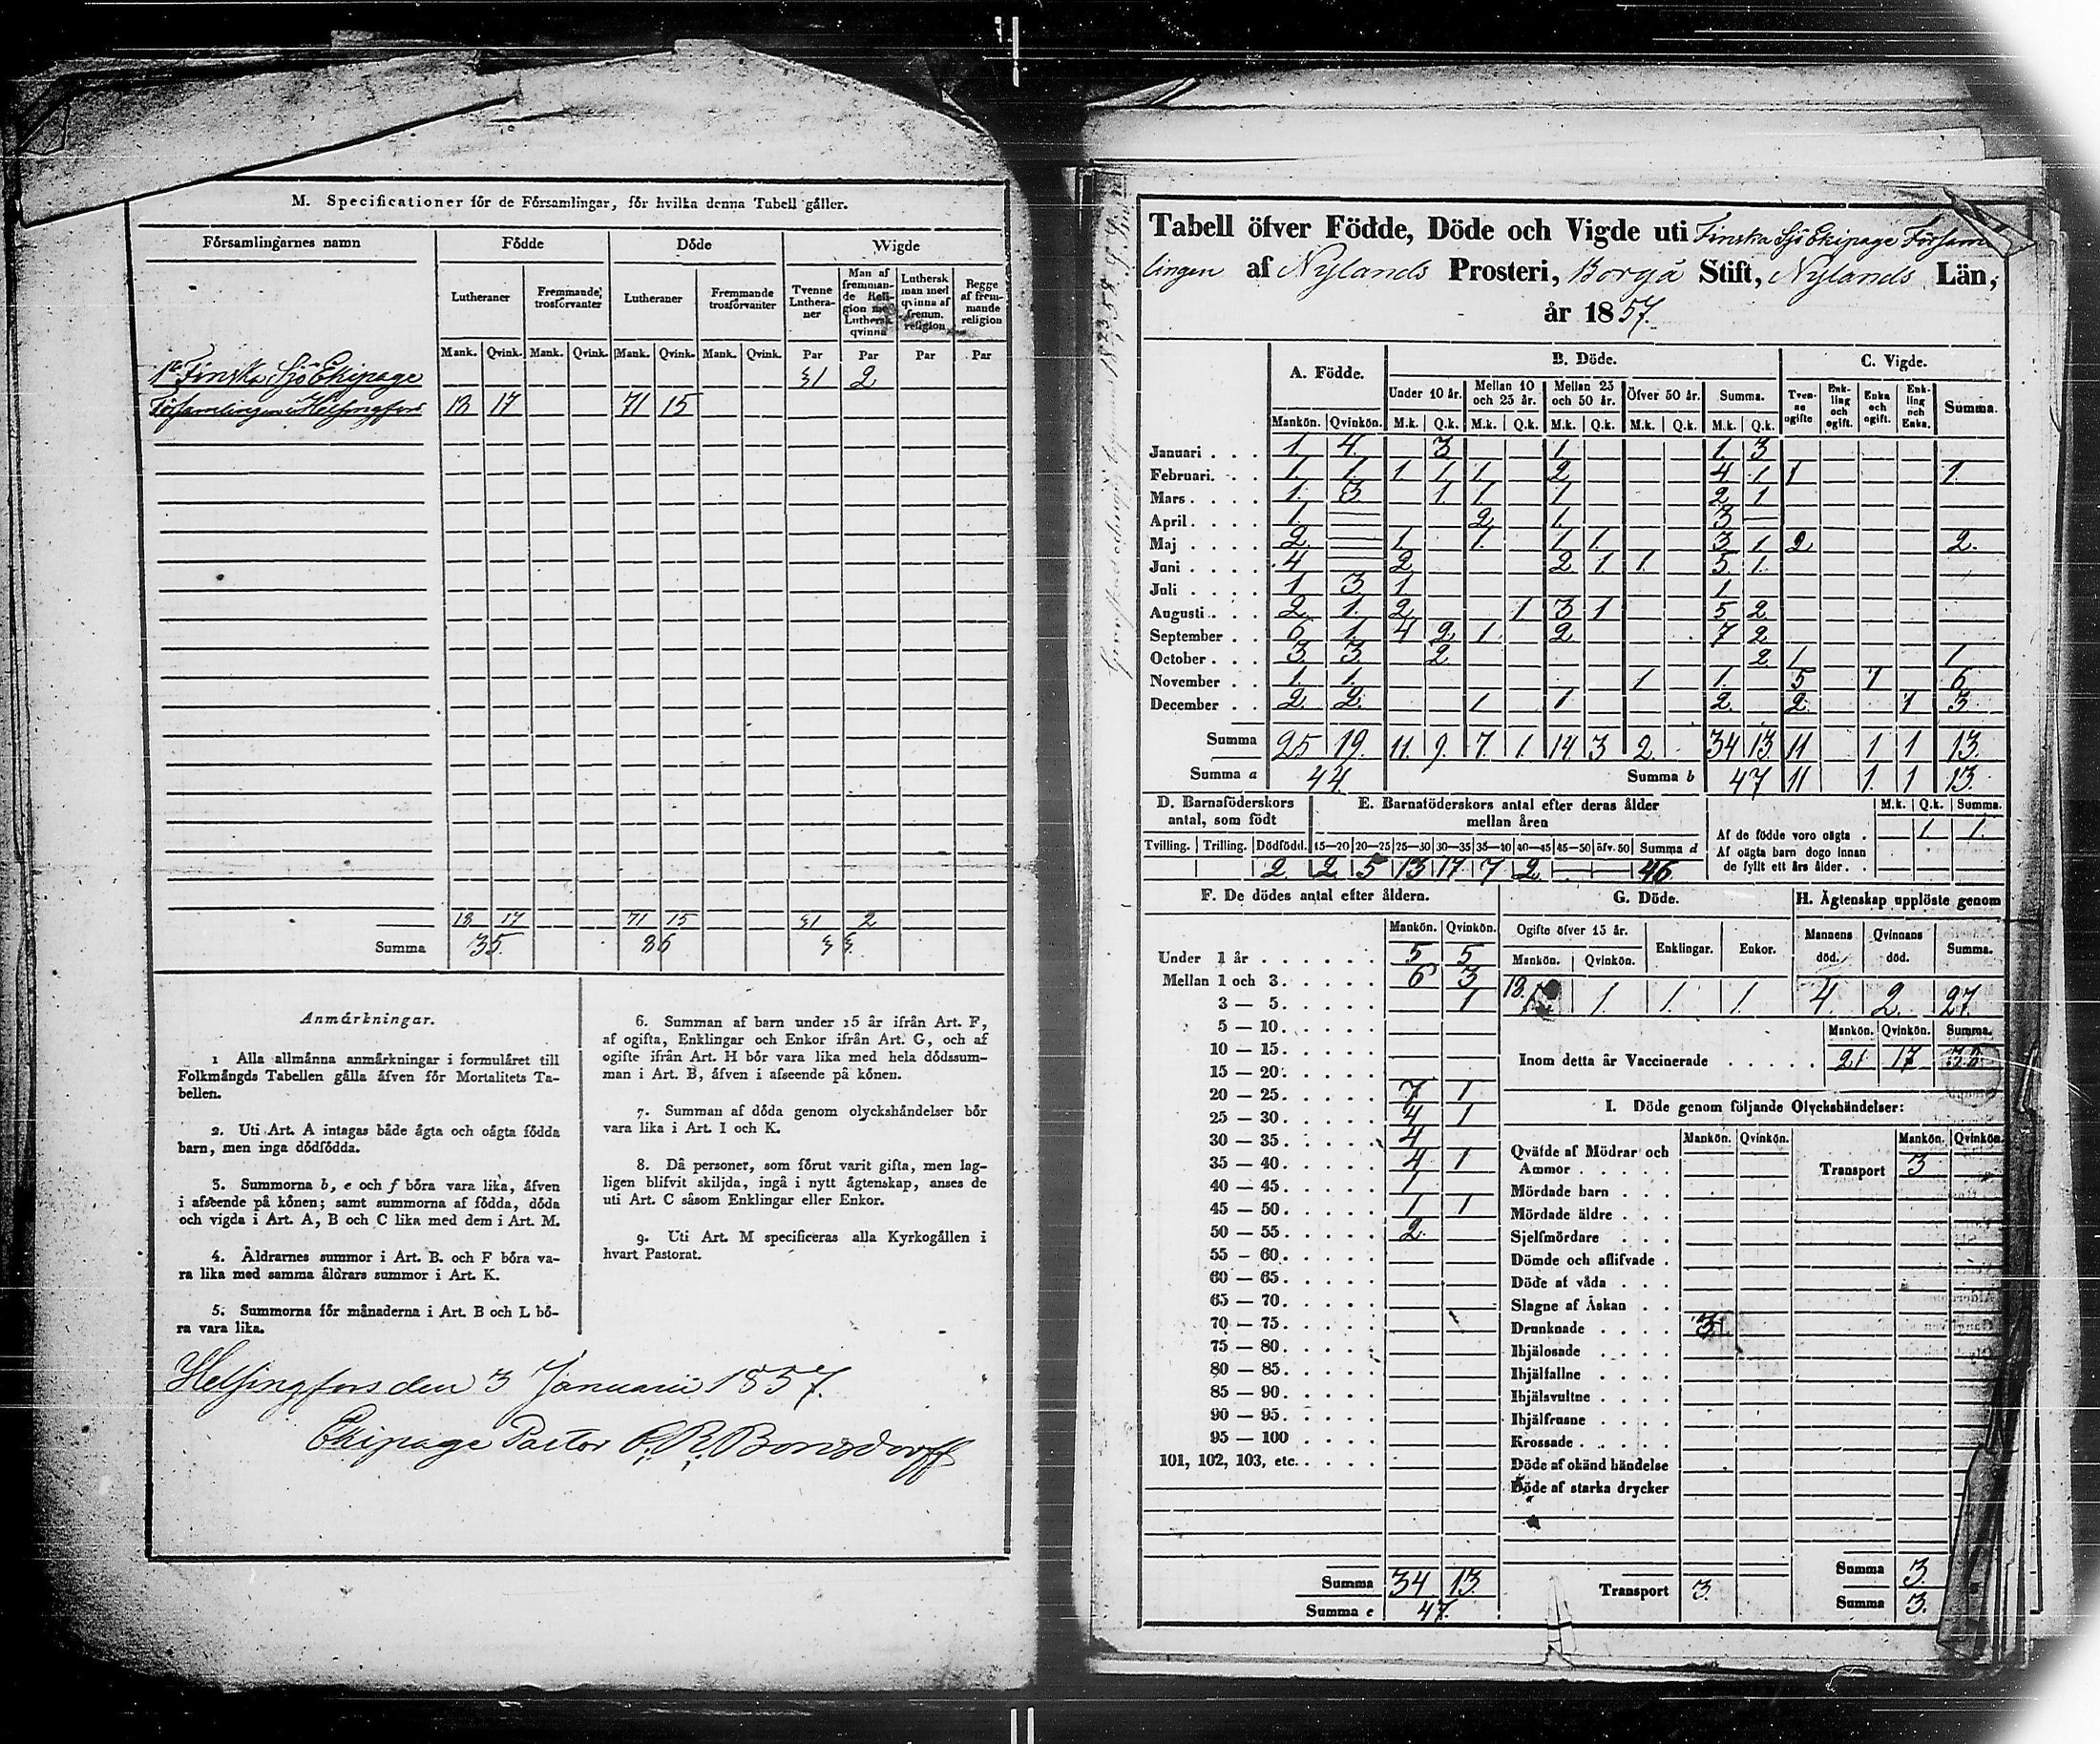 M. Specificationer för de Församlingar, för hvilka denna Tabell gäller.
Församlingarnes namn Födde Döde Wigde
Lutheraner Fremmande trosförvanter Lutheraner Fremmande trosförvanter Tvenne Lutheraner Man af fremmande Religion med Luthersk qvinna Luthersk man med qvinna af fremm. religion Begge af fremmande religion
Mank. Qvink. Mank. Qvink. Mank. Qvink. Mank. Qvink. Par Par Par Par
1a Finska Sjö Ekipage 31 2
Församlingen i Helsingfors 18 17 71 15
18 17 71 15 31 2
Summa 35. 86 33.
Anmärkningar.
1 Alla allmänna anmärkningar i formuläret till
Folkmängds Tabellen gälla äfven för Mortalitets Ta-
bellen.
2. Uti Art. A intagas både ägta och oägta födda
barn, men inga dödfödda.
3. Summorna b, e och f böra vara lika, äfven
i afseende på könen; samt summorna af födda, döda
och vigda i Art. A, B och C lika med dem i Art. M.
4. Åldrarnes summor i Art. B. och F böra va-
ra lika med samma åldrars summor i Art. K.
5. Summorna för månaderna i Art. B och L bö-
ra vara lika.
6. Summan af barn under 15 år ifrån Art. F,
af ogifta, Enklingar och Enkor ifrån Art. G, och af
ogifte ifrån Art. H bör vara lika med hela dödssum-
man i Art. B, äfven i afseende på könen.
7. Summan af döda genom olyckshändelser bör
vara lika i Art. I och K.
8. Då personer, som förut varit gifta, men lag-
ligen blifvit skiljda, ingå i nytt ägtenskap, anses de
uti Art. C såsom Enklingar eller Enkor.
9. Uti Art. M specificeras alla Kyrkogällen i
hvart Pastorat.
Helsingfors den 3 Januarii 1857.
Ekipage Pastor C. R. Bonsdorff
Tabell öfver Födde, Döde och Vigde uti Finska Sjö Ekipage Försam
lingen af Nylands Prosteri, Borgå Stift, Nylands Län,
år 1857.
A. Födde. B. Döde. C. Vigde.
Under 10 år. Mellan 10 och 25 år. Mellan 25 och 50 år. Öfver 50 år. Summa. Tvenne ogifte Enkling och ogift. Enka och ogift. Enkling och Enka. Summa.
Mankön. Qvinkön. M.k. Q.k. M.k. Q.k. M.k. Q.k. M.k. Q.k. M.k. Q.k.
Januari . . . 1. 4. 3 1 1. 3
Februari. . . 1. 1. 1. 1. 1. 2 4 1 1 1.
Mars . . . . 1. 3 1. 1. 1 2 1
April . . . . 1. 2 1. 3
Maj . . . . 2 1. 1. 1 1. 3 1 2 2.
Juni . . . . 4 2 2 1 1. 5 1.
Juli . . . . 1 3 1 1
Augusti . . . 2 1. 2 1 3 1 5 2
September . . 6 1. 4 2 1. 2 7 2
October . . . 3 3 2 2 1 1
November . . 1. 1. 1 1. 5 1 6
December . . 2 2 1 1 2. 2 1 3
Summa 25 19. 11. 9. 7. 1. 14. 3 2. 34 13. 11 1 1 13.
Summa a 44. Summa b 47 11 1. 1 13.
D. Barnaföderskors antal, som födt
E. Barnaföderskors antal efter deras ålder mellan åren
M.k. Q.k. Summa.
Af de födde voro oägta . 1. 1.
Af oägta barn dogo innan
de fyllt ett års ålder. .
Tvilling. Trilling. Dödfödd. 15—20 20—25 25—30 30—35 35—40 40—45 45—50 öfv. 50 Summa d
2 2 5 13 17 7 2 46
F. De dödes antal efter åldern.
Mankön. Qvinkön.
Under 1 år . . . . . . 5 5
Mellan 1 och 3 . . . . . 6 3
3 — 5 . . . . . 1
5 — 10 . . . . .
10 — 15 . . . . .
15 — 20 . . . . .
20 — 25 . . . . . 7 1
25 — 30 . . . . . 4 1
30 — 35 . . . . . 4
35 — 40 . . . . . 4 1
40 — 45 . . . . . 1
45 — 50 . . . . . 1 1
50 — 55 . . . . . 2.
55 — 60 . . . . .
60 — 65 . . . . .
65 — 70 . . . . .
70 — 75 . . . . .
75 — 80 . . . . .
80 — 85 . . . . .
85 — 90 . . . . .
90 — 95 . . . . .
95 — 100 . . . .
101, 102, 103, etc. . . . .
Summa 34 13.
Summa e 47.
G. Döde.
Ogifte öfver 15 år. Enklingar. Enkor.
Mankön. Qvinkön.
18. 1. 1. 1.
H. Ägtenskap upplöste genom
Mannens död. Qvinnans död. Summa.
4. 2. 27.
Mankön. Qvinkön. Summa.
Inom detta år Vaccinerade . . . . . 21 17
I. Döde genom följande Olyckshändelser:
Mankön. Qvinkön. Mankön. Qvinkön.
Qväfde af Mödrar och
Ammor . . . . . Transport 3
Mördade barn . . .
Mördade äldre . . .
Sjelfmördare . . .
Dömde och aflifvade .
Döde af våda . . .
Slagne af Åskan . .
Drunknade . . . . 3
Ihjälosade . . . .
Ihjälfallne . . . .
Ihjälsvultne . . . .
Ihjälfrusne . . . .
Krossade . . . . .
Döde af okänd händelse
Döde af starka drycker
Summa 3
Transport 3.
Summa 3.